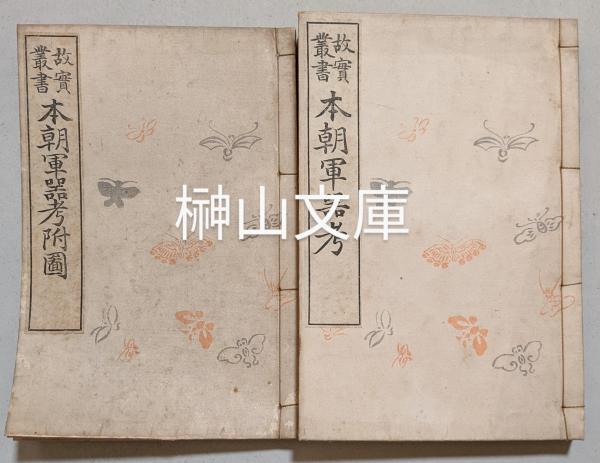 故實叢書
本朝軍器考
故實叢書
本朝軍器考附圖
榊山文庫